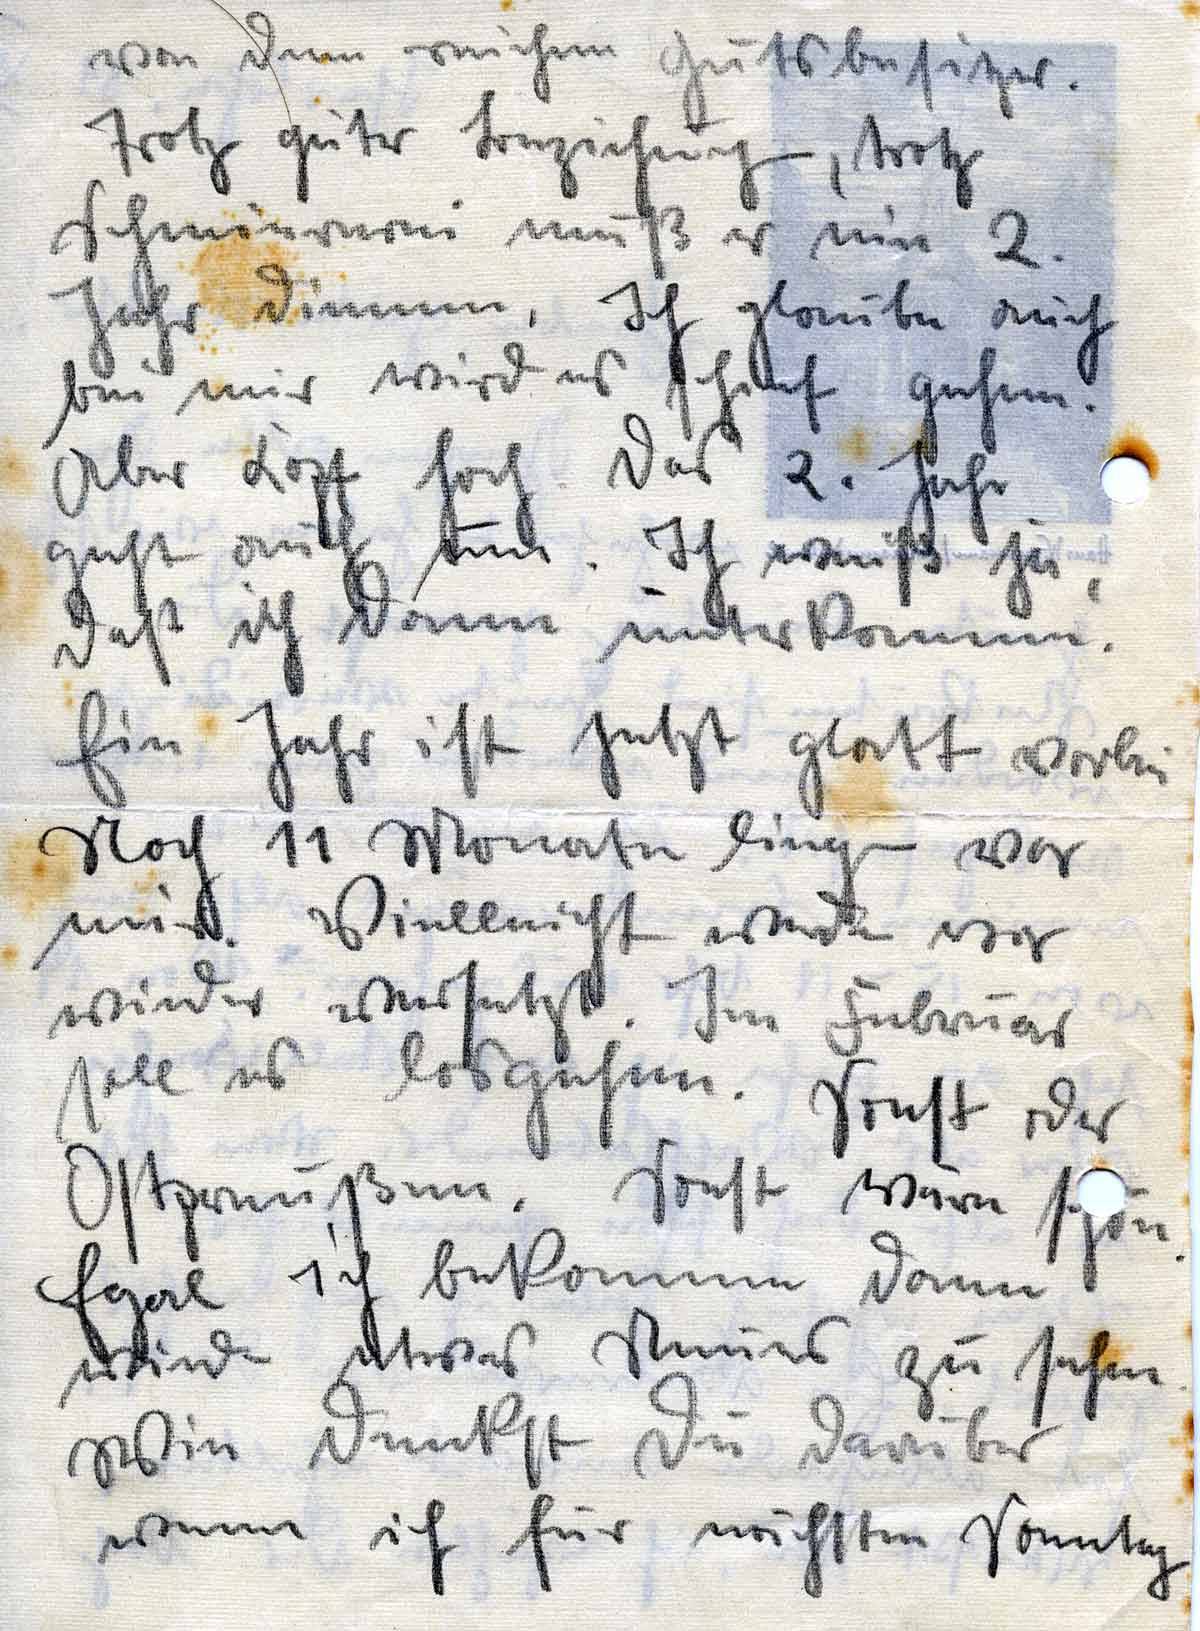 von dem reichen Gutsbesitzer.
Trotz guter Beziehung, trotz
Schmiererei muß er ein 2.
Jahr dienen. Ich glaube auch
bei mir wird es schief gehen.
Aber Kopf hoch. Das 2. Jahr
geht auch um. Ich weiß ja,
daß ich dann unterkomme.
Ein Jahr ist jetzt glatt vorbei
Noch 11 Monate liegen vor
mir. Vielleicht werde vor
wieder versetzt. Im Februar
soll es losgehen. Senft oder
Ostpreußen. Senft wäre schön.
Egal ich bekomme dann
wieder etwas Neues zu sehen.
Wie denkst Du darüber
wenn ich für nächsten Sonntag